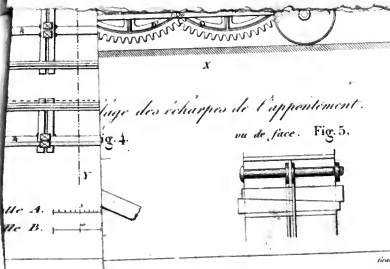 X
des écharpes de l'appontement.
vu de face. Fig. 5.
ig. 4.
Y
A.
B.